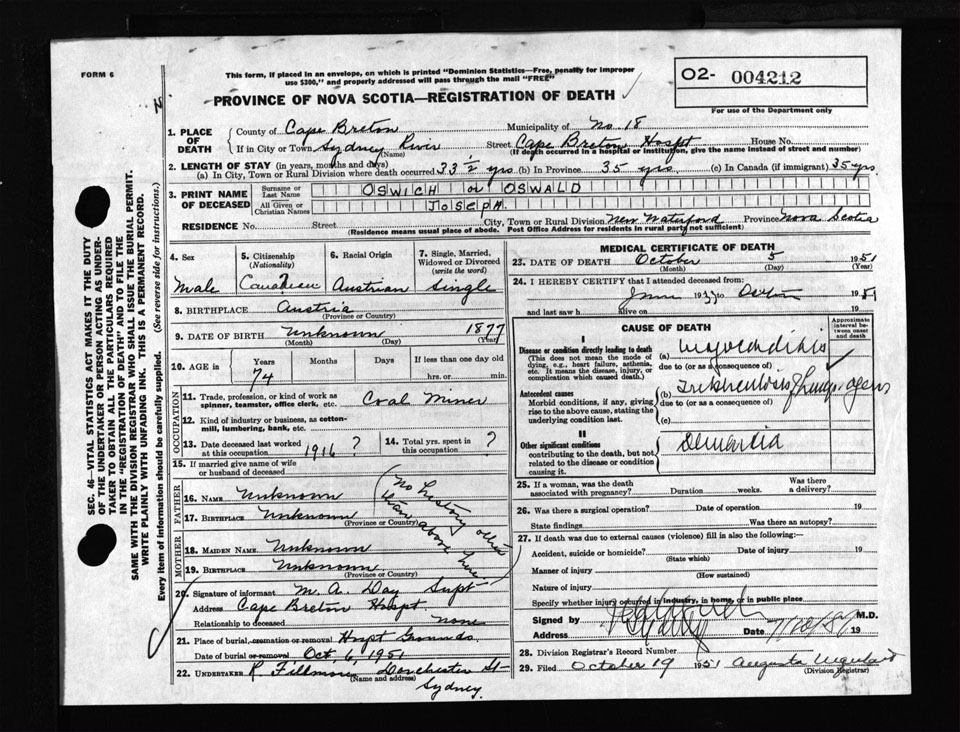 FORM 6
This form, if placed in an envelope, on which is printed "Dominion Statistics—Free, penalty for improper
use $300," and properly addressed will pass through the mail "FREE"
O2- 004212
For use of the Department only
PROVINCE OF NOVA SCOTIA—REGISTRATION OF DEATH
SEC. 46—VITAL STATISTICS ACT MAKES IT THE DUTY
OF THE UNDERTAKER OR PERSON ACTING AS UNDER-
TAKER TO OBTAIN ALL THE PARTICULARS REQUIRED
IN THE "REGISTRATION OF DEATH" AND TO FILE THE
SAME WITH THE DIVISION REGISTRAR WHO SHALL ISSUE THE BURIAL PERMIT.
WRITE PLAINLY WITH UNFADING INK. THIS IS A PERMANENT RECORD.
Every item of information should be carefully supplied. (See reverse side for instructions.)
1. PLACE OF DEATH
County of Cape Breton Municipality of No. 18
If in City or Town Sydney River Street Cape Breton Hospt House No.
(Name) (If death occurred in a hospital or institution, give the name instead of street and number)
2. LENGTH OF STAY (in years, months and days)
(a) In City, Town or Rural Division where death occurred 33 1/2 yrs (b) In Province 35 yrs. (c) In Canada (if immigrant) 35 yrs
3. PRINT NAME OF DECEASED
Surname or Last Name OSWICH or OSWALD
All Given or Christian Names JOSEPH.
RESIDENCE No. Street City, Town or Rural Division New Waterford Province Nova Scotia
(Residence means usual place of abode. Post Office Address for residents in rural parts not sufficient)
4. Sex
Male
5. Citizenship (Nationality)
Canadian ?
6. Racial Origin
Austrian
7. Single, Married, Widowed or Divorced (write the word)
Single
8. BIRTHPLACE Austria
(Province or Country)
9. DATE OF BIRTH Unknown 1877
(Month) (Day) (Year)
10. AGE in Years Months Days If less than one day old
74 hrs. or min.
OCCUPATION
11. Trade, profession, or kind of work as spinner, teamster, office clerk, etc. Coal Miner
12. Kind of industry or business, as cotton-mill, lumbering, bank, etc.
13. Date deceased last worked at this occupation 1916 ?
14. Total yrs. spent in this occupation ?
15. If married give name of wife or husband of deceased
FATHER
16. NAME Unknown
17. BIRTHPLACE Unknown
(Province or Country)
MOTHER
18. MAIDEN NAME Unknown
19. BIRTHPLACE Unknown
(Province or Country)
(No history other than above here)
20. Signature of informant M. A. Day Supt
Address Cape Breton Hospt.
Relationship to deceased none
21. Place of burial, cremation or removal Hospt Grounds.
Date of burial or removal Oct, 6, 1951
22. UNDERTAKER R. Fillmore Dorchester St-
(Name and address)
Sydney.
MEDICAL CERTIFICATE OF DEATH
23. DATE OF DEATH October 5 1951
(Month) (Day)
24. I HEREBY CERTIFY that I attended deceased from:
to 1951
and last saw h alive on 19
CAUSE OF DEATH
Approximate interval between onset and death
I
Disease or condition directly leading to death
(This does not mean the mode of dying, e.g., heart failure, asthenia, etc. It means the disease, injury, or complication which caused death.)
(a) Myocarditis
due to (or as a consequence of)
Antecedent causes
Morbid conditions, if any, giving rise to the above cause, stating the underlying condition last.
(b) Tuberculosis of Lungs
due to (or as a consequence of)
(c)
II
Other significant conditions
contributing to the death, but not related to the disease or condition causing it
Dementia
25. If a woman, was the death associated with pregnancy? Duration weeks. Was there a delivery?
26. Was there a surgical operation? Date of operation 19
State findings Was there an autopsy?
27. If death was due to external causes (violence) fill in also the following:—
Accident, suicide or homicide? Date of injury 19
(State which)
Manner of injury
(How sustained)
Nature of injury
Specify whether injury occurred in industry, in home, or in public place
Signed by M.D.
Address Sydney Date 19
28. Division Registrar's Record Number
29. Filed October 19 1951 Augusta
(Division Registrar)